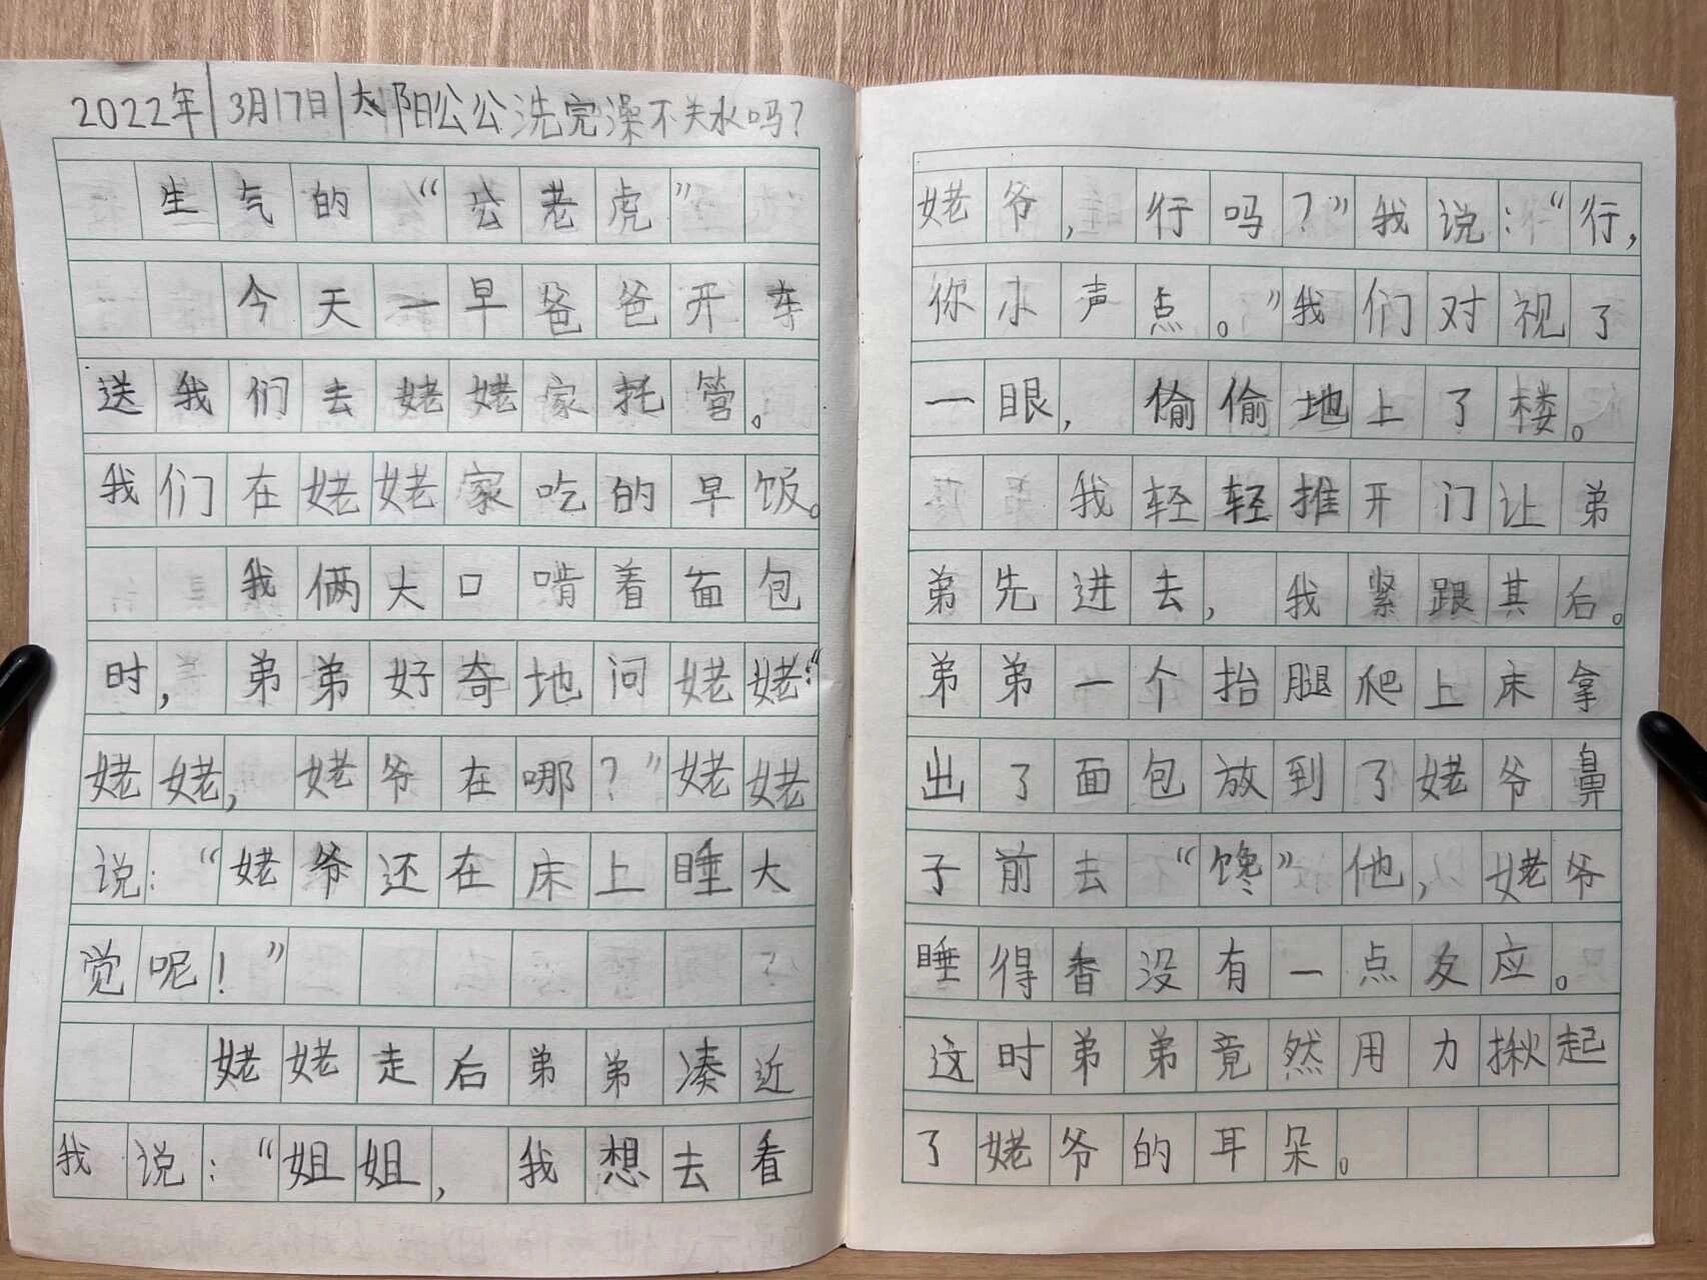 2022年|3月17日|太阳公公洗完澡不关水吗?
生气的“公老虎”
今天一早爸爸开车
送我们去姥姥家托管。
我们在姥姥家吃的早饭。
我俩大口啃着面包
时,弟弟好奇地问姥姥:“
姥姥,姥爷在哪?”姥姥
说:“姥爷还在床上睡大
觉呢!”
姥姥走后弟弟凑近
我说:“姐姐,我想去看
姥爷,行吗?”我说:“行,
你小声点。”我们对视了
一眼,偷偷地上了楼。
我轻轻推开门让弟
弟先进去,我紧跟其后。
弟弟一个抬腿爬上床拿
出了面包放到了姥爷鼻
子前去“馋”他,姥爷
睡得香没有一点反应。
这时弟弟竟然用力揪起
了姥爷的耳朵。